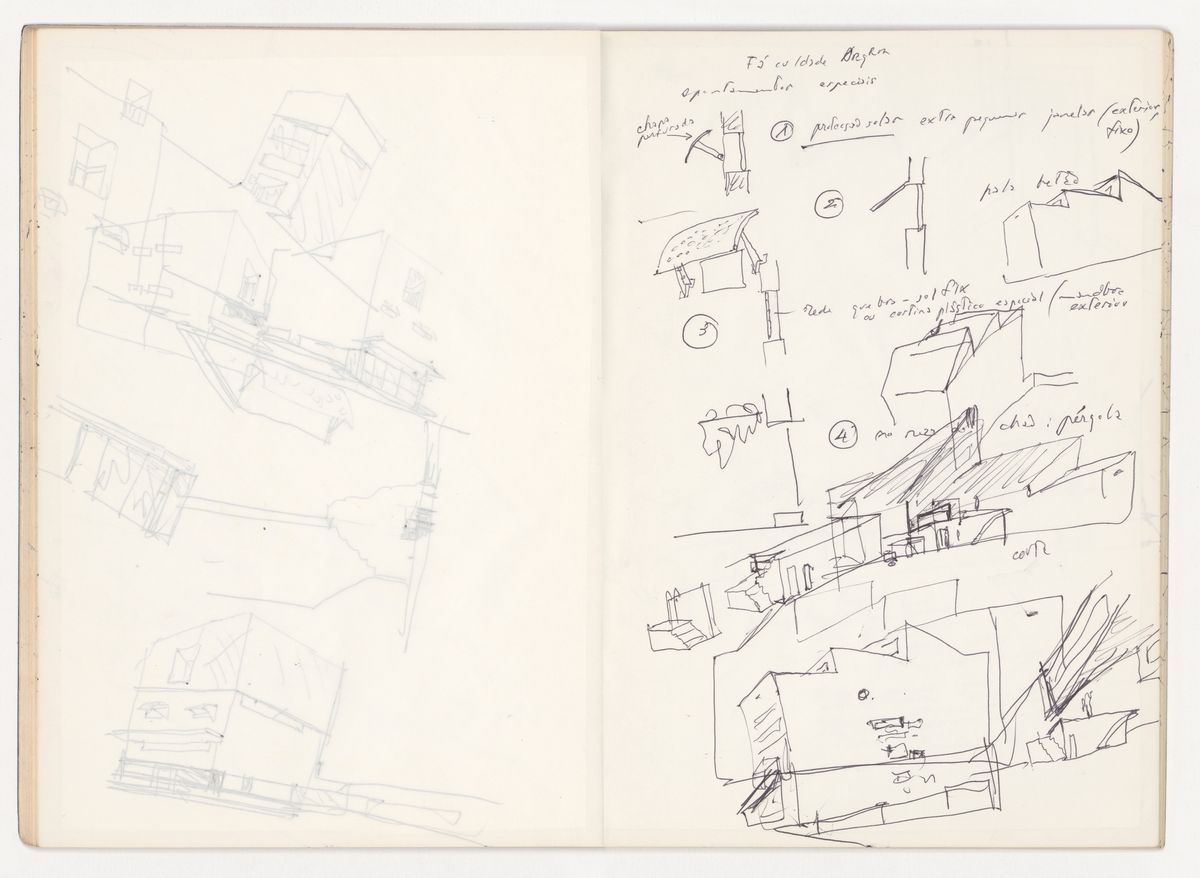 Fáculdade Arq
apontamentos especiais
chapa
perfurada
① protecção solar extra pequenas janelas (exterior,
fixo)
② pala betão
③ rede quebra-sol fix
ou cortina plástico especial (
exterior
④ : pérgola
corte